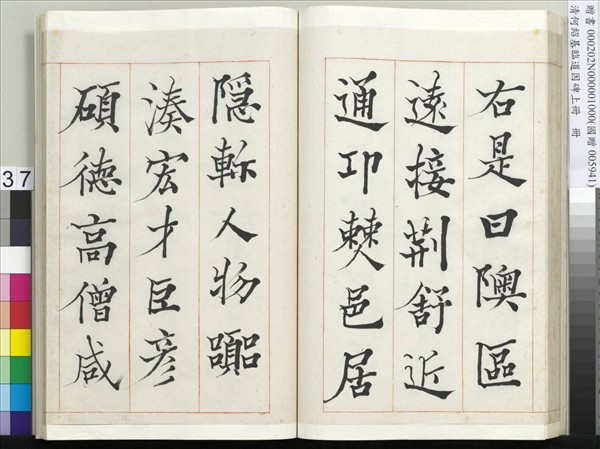 贈書 000202N000001000(國贈 005941)
清何紹基臨道因碑上冊 冊
右是曰隩區
遠接荊舒近
通卭僰邑居
隱軫人物囂
湊宏才巨彥
碩德高僧咸
37